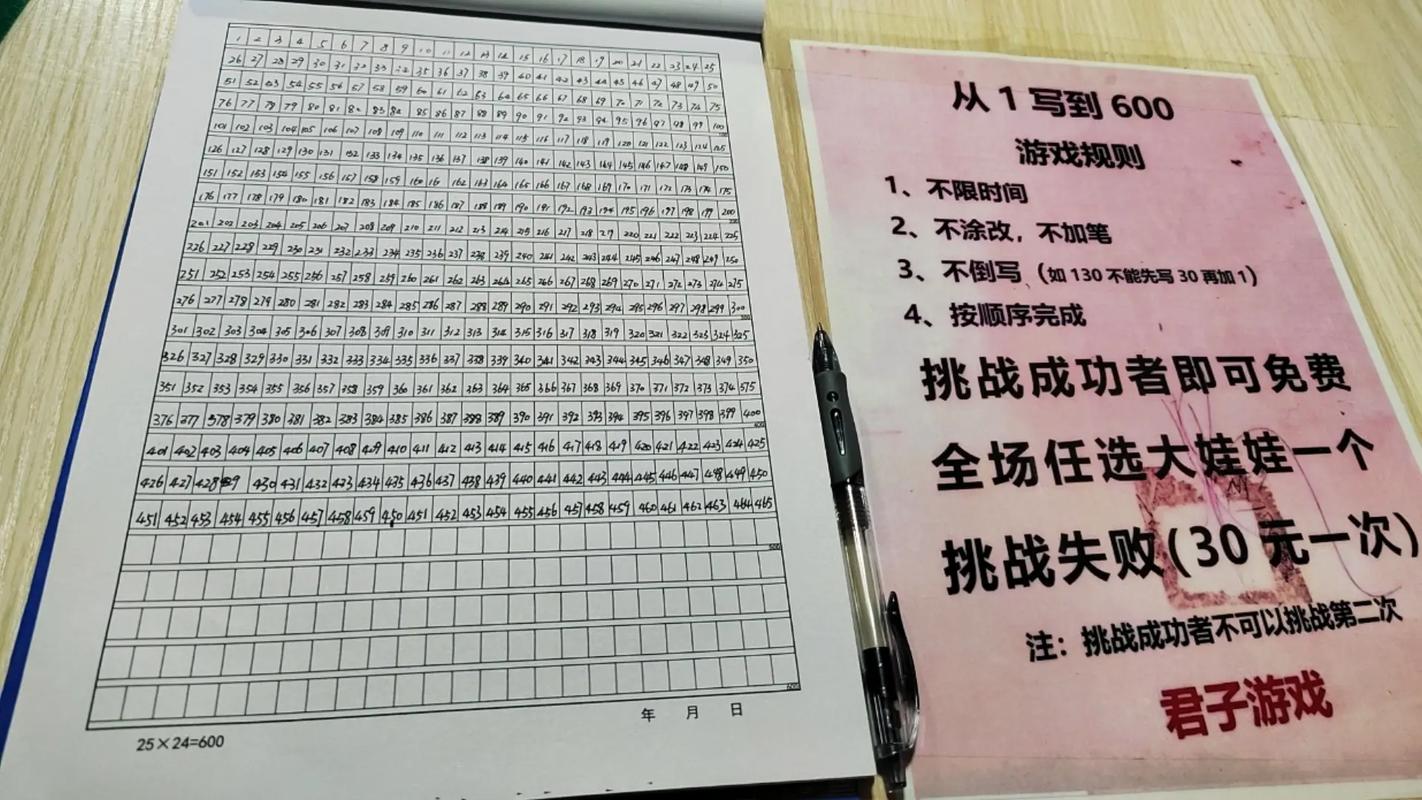 1 2 3 4 5 6 7 8 9 10 11 12 13 14 15 16 17 18 19 20 21 22 23 24 25
26 27 28 29 30 31 32 33 35 36 37 38 39 40 41 42 43 44 45 46 47 48 49 50
51 52 53 54 55 56 57 58 59 60 61 62 63 64 65 66 67 68 69 70 71 72 73 74 75
76 77 78 79 80 81 82 83 85 86 87 88 89 90 91 92 93 94 95 96 97 98 99 100
101 102 103 104 105 106 107 108 109 110 111 112 113 114 115 116 117 118 119 120 121 122 123 124 125
126 127 128 129 130 131 132 133 134 135 136 137 138 139 140 141 142 143 144 145 146 147 148 149 150
151 152 153 154 155 156 157 158 159 160 162 163 164 165 166 167 168 169 170 171 172 173 174 175
176 177 178 179 180 181 182 183 184 185 186 187 188 189 190 191 192 193 194 195 196 197 198 199 200
201 202 203 204 205 206 207 208 209 210 211 212 213 214 215 216 217 218 220 221 222 223 224 225
226 227 228 229 230 231 232 233 234 235 236 237 238 239 240 241 242 243 244 245 246 247 248 249 250
251 252 253 254 255 256 257 258 259 260 261 262 263 264 265 266 267 268 269 270 271 272 273 274 275
276 277 278 279 280 281 282 283 284 285 286 287 288 289 290 291 292 293 294 295 296 297 298 299 300
301 302 303 304 305 306 307 308 309 310 311 312 313 314 315 316 317 318 319 320 321 322 323 324 325
326 327 328 329 330 331 332 333 334 335 336 337 338 339 340 341 342 343 344 345 346 347 348 349 350
351 352 353 354 355 356 357 358 359 360 361 362 363 364 365 366 367 368 369 370 371 372 373 374 575
376 377 378 379 380 381 382 383 384 385 386 387 388 389 390 391 392 393 394 395 396 397 398 399 400
401 402 403 404 405 406 407 408 409 410 411 412 413 414 415 416 417 418 419 420 421 422 423 424 425
426 427 428 430 431 432 433 434 435 436 437 438 439 440 441 442 443 444 445 446 447 448 449 450
451 452 453 454 455 456 457 458 459 450 451 452 453 454 455 456 457 458 459 460 461 462 463 464 465
500
600
年 月 日
25×24=600
从1写到600
游戏规则
1、不限时间
2、不涂改，不加笔
3、不倒写（如130不能先写30再加1）
4、按顺序完成
挑战成功者即可免费
全场任选大娃娃一个
挑战失败(30元一次)
注：挑战成功者不可以挑战第二次
君子游戏